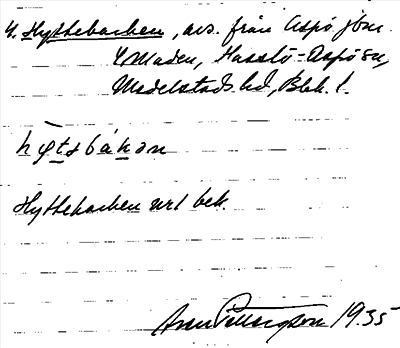 4. Hyttebacken, avs. från Aspö jbsn.
Maden, Hasslö-Aspö sn,
Medelstads hd, Blek. l.
hytsbakan
Hyttebacken url bek.
Pettersson 1935